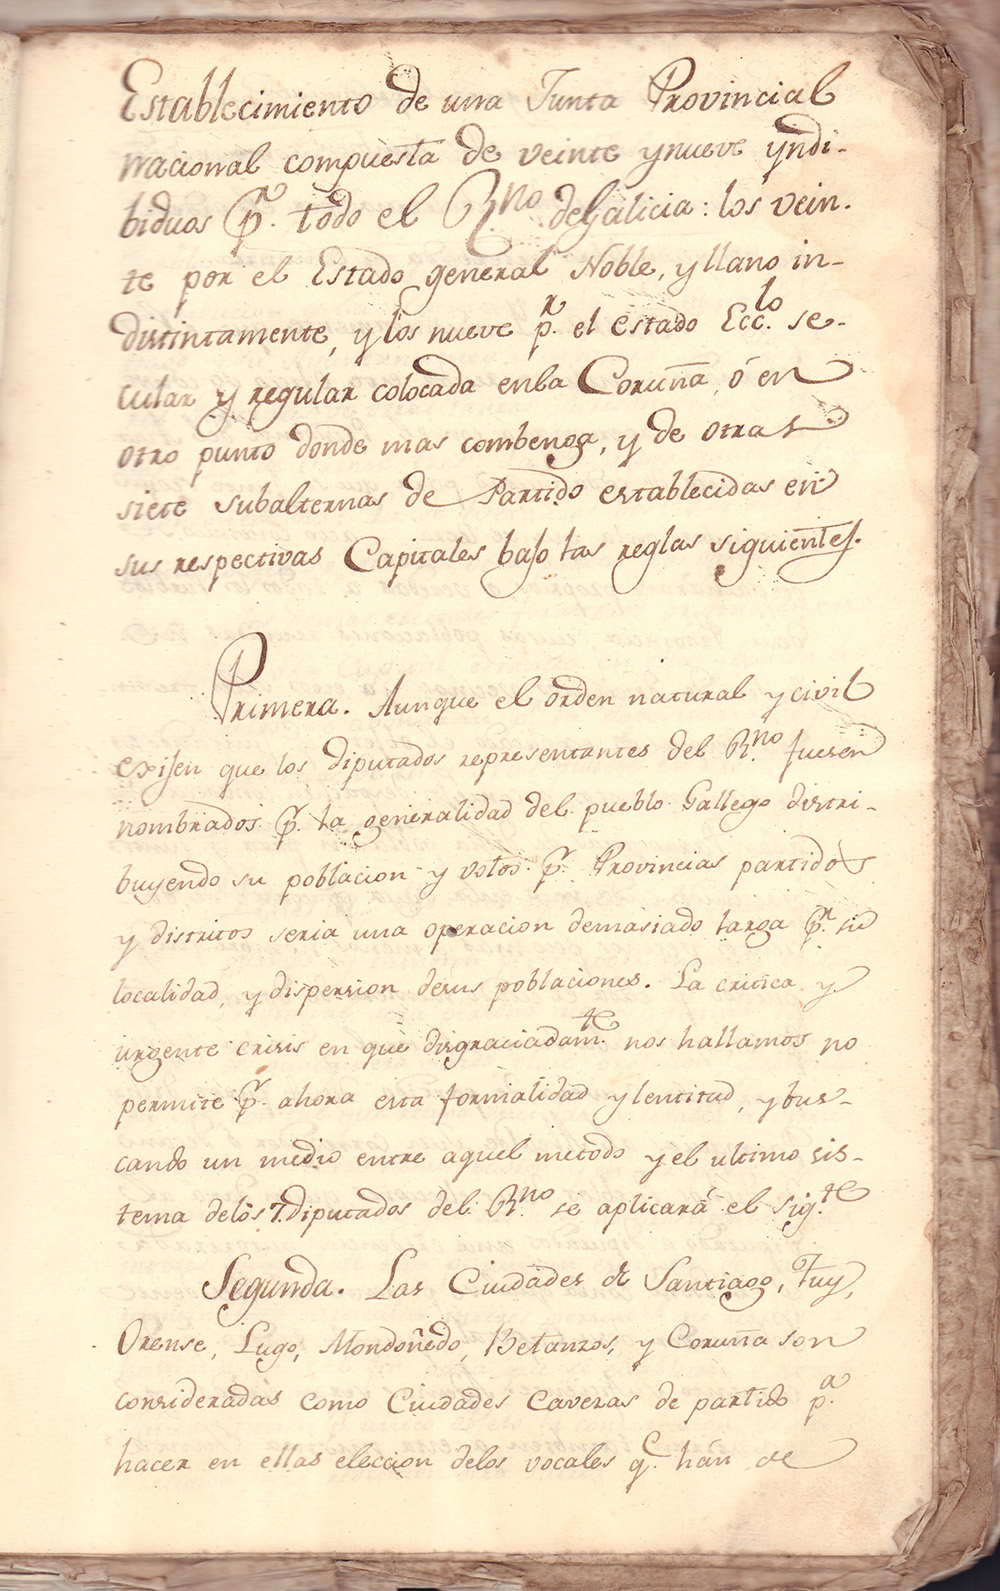 Establecimiento de una Junta Provincial
nacional compuesta de veinte y nueve yndi-
biduos pr. todo el Rno. de Galicia: los vein-
te por el Estado general Noble, y llano in-
distintamente, y los nueve pr. el estado Ecclo. se-
cular y regular colocada en la Coruña, ó en
otro punto donde mas combenga, y de otras
siete subalternas de Partido establecidas en
sus respectivas Capitales bajo las reglas siguientes.
Primera. Aunque el orden natural y civil
exijen que los diputados representantes del Rno. fuesen
nombrados pr. la generalidad del pueblo Gallego distri-
buyendo su poblacion y votos pr. Provincias partidos
y distritos seria una operacion demasiado larga pr. su
localidad, y dispersion desus poblaciones. La critica y
urgente crisis en que disgraciadamte. nos hallamos no
permite pr. ahora esta formalidad y lentitud, y bus-
cando un medio entre aquel metodo y el ultimo sis-
tema delos 7. diputados del Rno. se aplicará el sigte.
Segunda. Las Ciudades de Santiago, Tuy,
Orense, Lugo, Mondoñedo, Betanzos, y Coruña son
consideradas como Ciudades caveras de partido pa.
hacer en ellas eleccion delos vocales qe. hán de